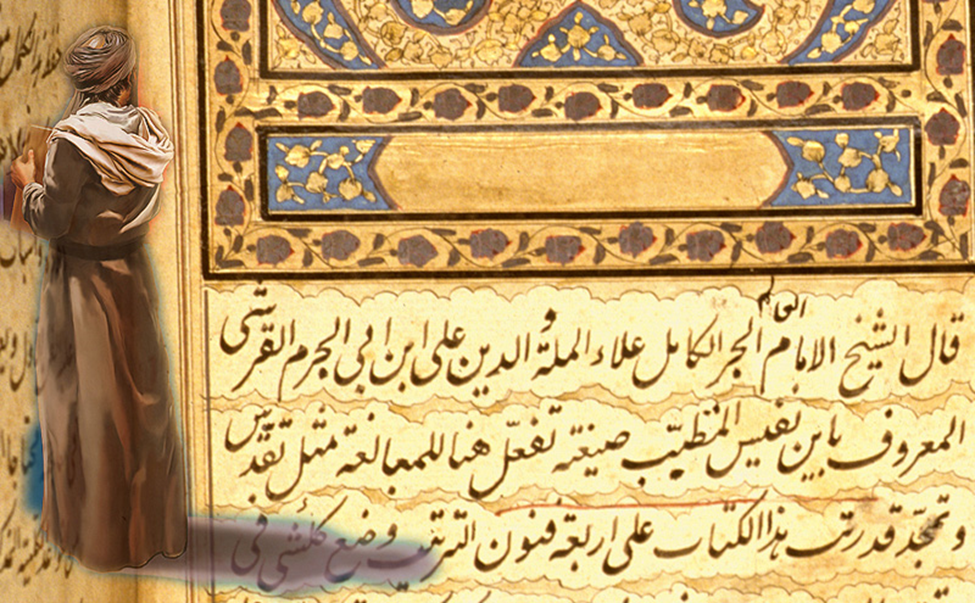 العالم
قال الشيخ الامام الحبر الكامل علاء الملة و الدين على ابن ابى الحرم القرشى
المعروف بابن نفيس المتطبب صيغة تفعّل هنا للمبالغة مثل تقدّس
و تمجّد قد رتبت هذا الكتاب على اربعة فنون الترتيب وضع كل شئ فى